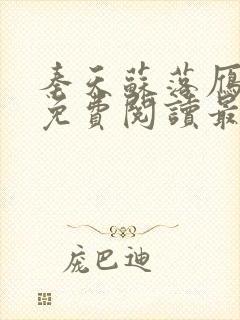 奉天蘇落雁
免費閱讀最
庞巴迪